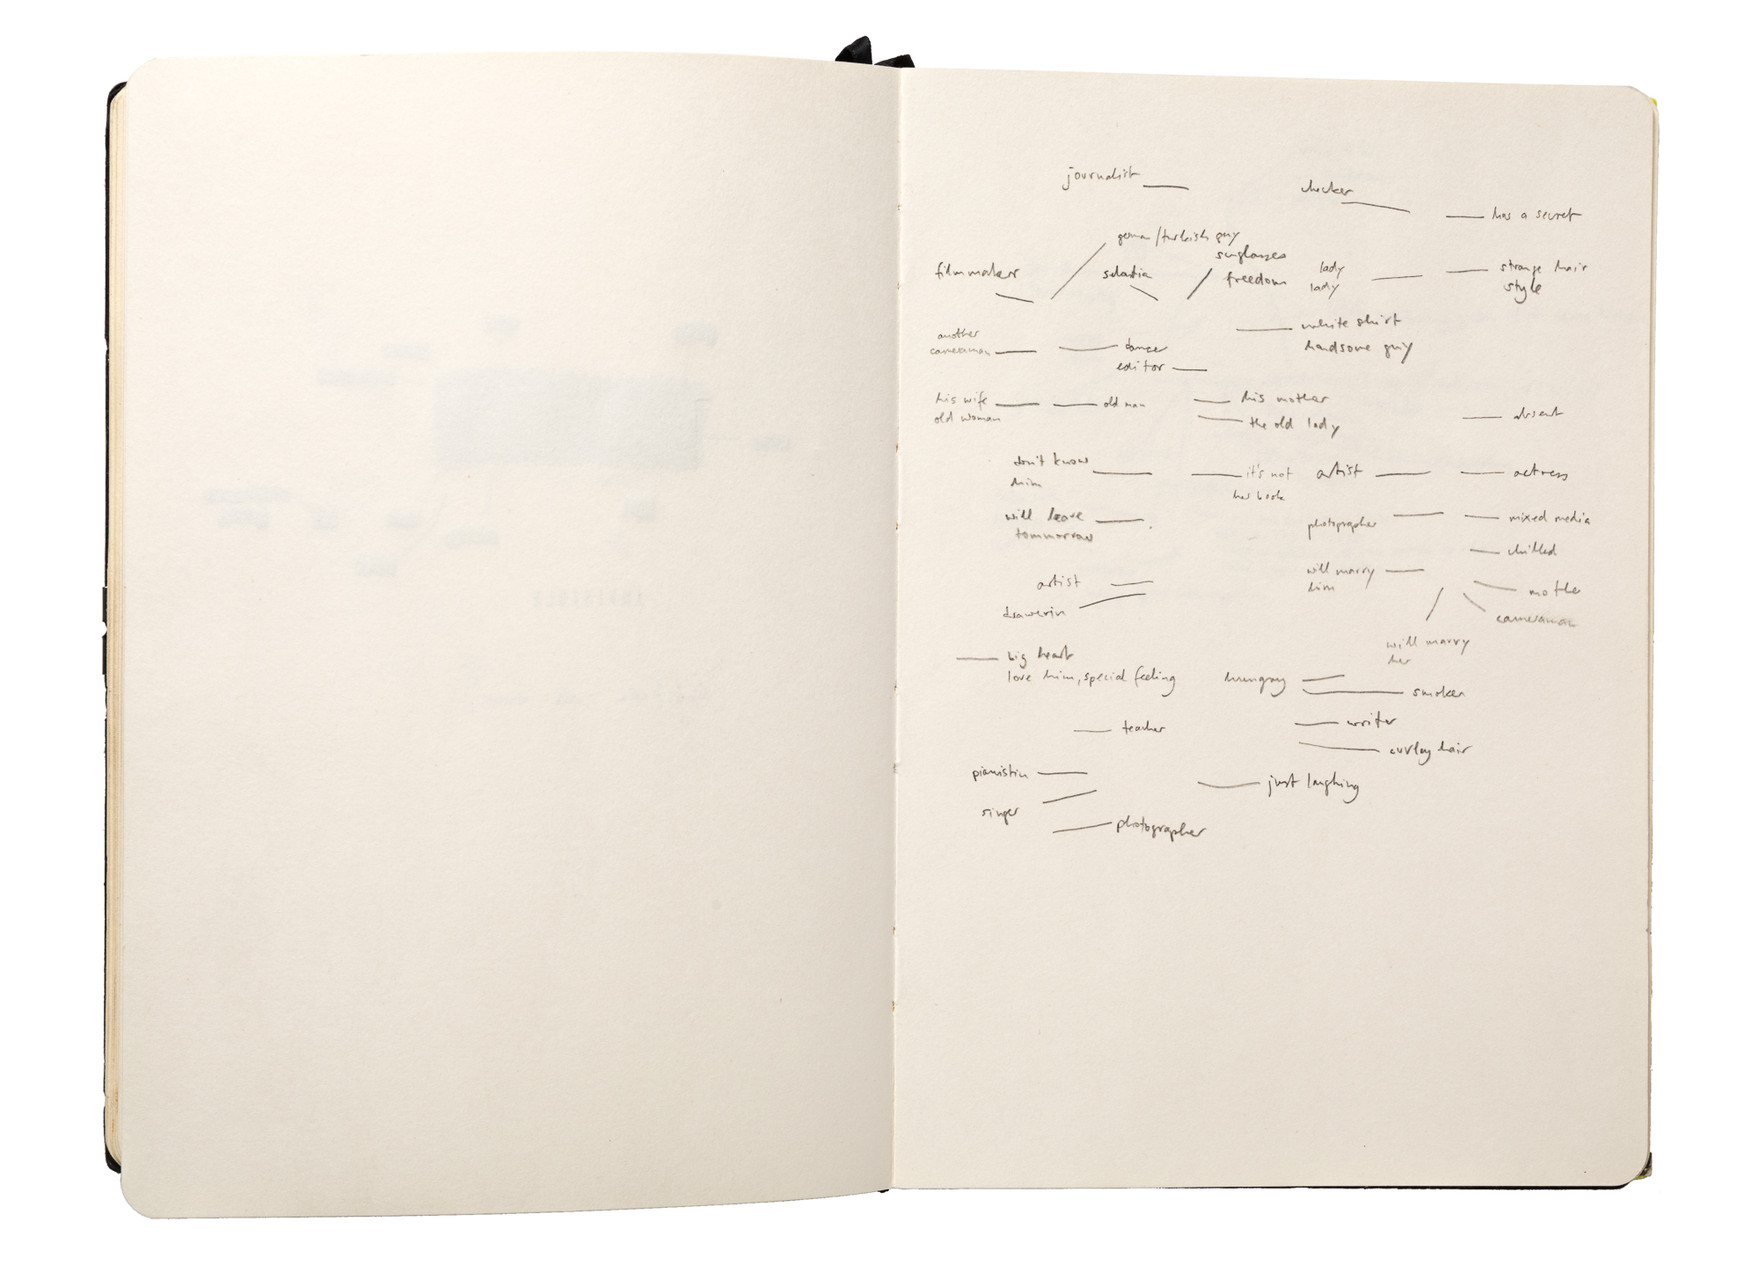 journalist
has a secret
german/turkish guy
sunglasses
freedom
filmmaker
lady
lady
strange hair
style
white shirt
handsome guy
another
cameraman
dancer
editor
his wife
old woman
old man
his mother
the old lady
absent
don't know
him
it's not
her book
artist
actress
will leave
tommorrow
photographer
mixed media
chilled
will marry
him
artist
drawerin
mother
cameraman
will marry
her
big heart
love him, special feeling
hungray
smoker
teacher
writer
curley hair
pianistin
just laughing
singer
photographer